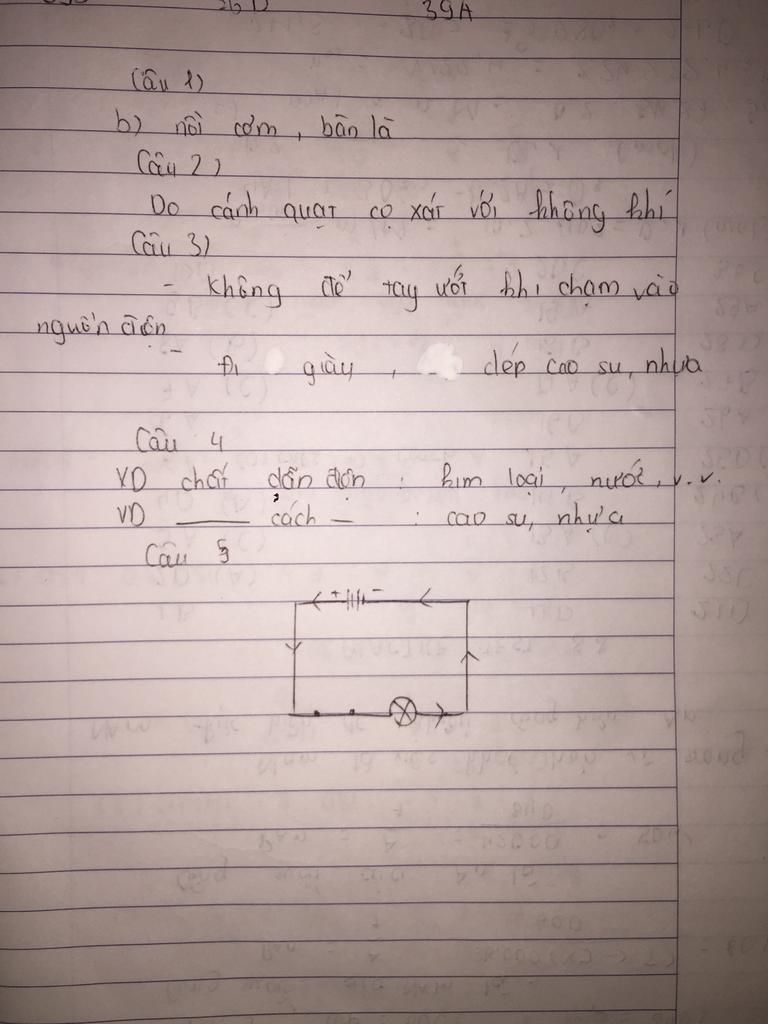 39A
Câu 1)
b) nồi cơm, bàn là
Câu 2)
Do cánh quạt cọ xát với không khí
Câu 3)
- Không để tay ướt khi chạm vào
nguồn điện
- Đi giày, dép cao su, nhựa
Câu 4
VD chất dẫn điện : kim loại, nước, v.v.
VD ___ cách — : cao su, nhựa
Câu 5
+ -